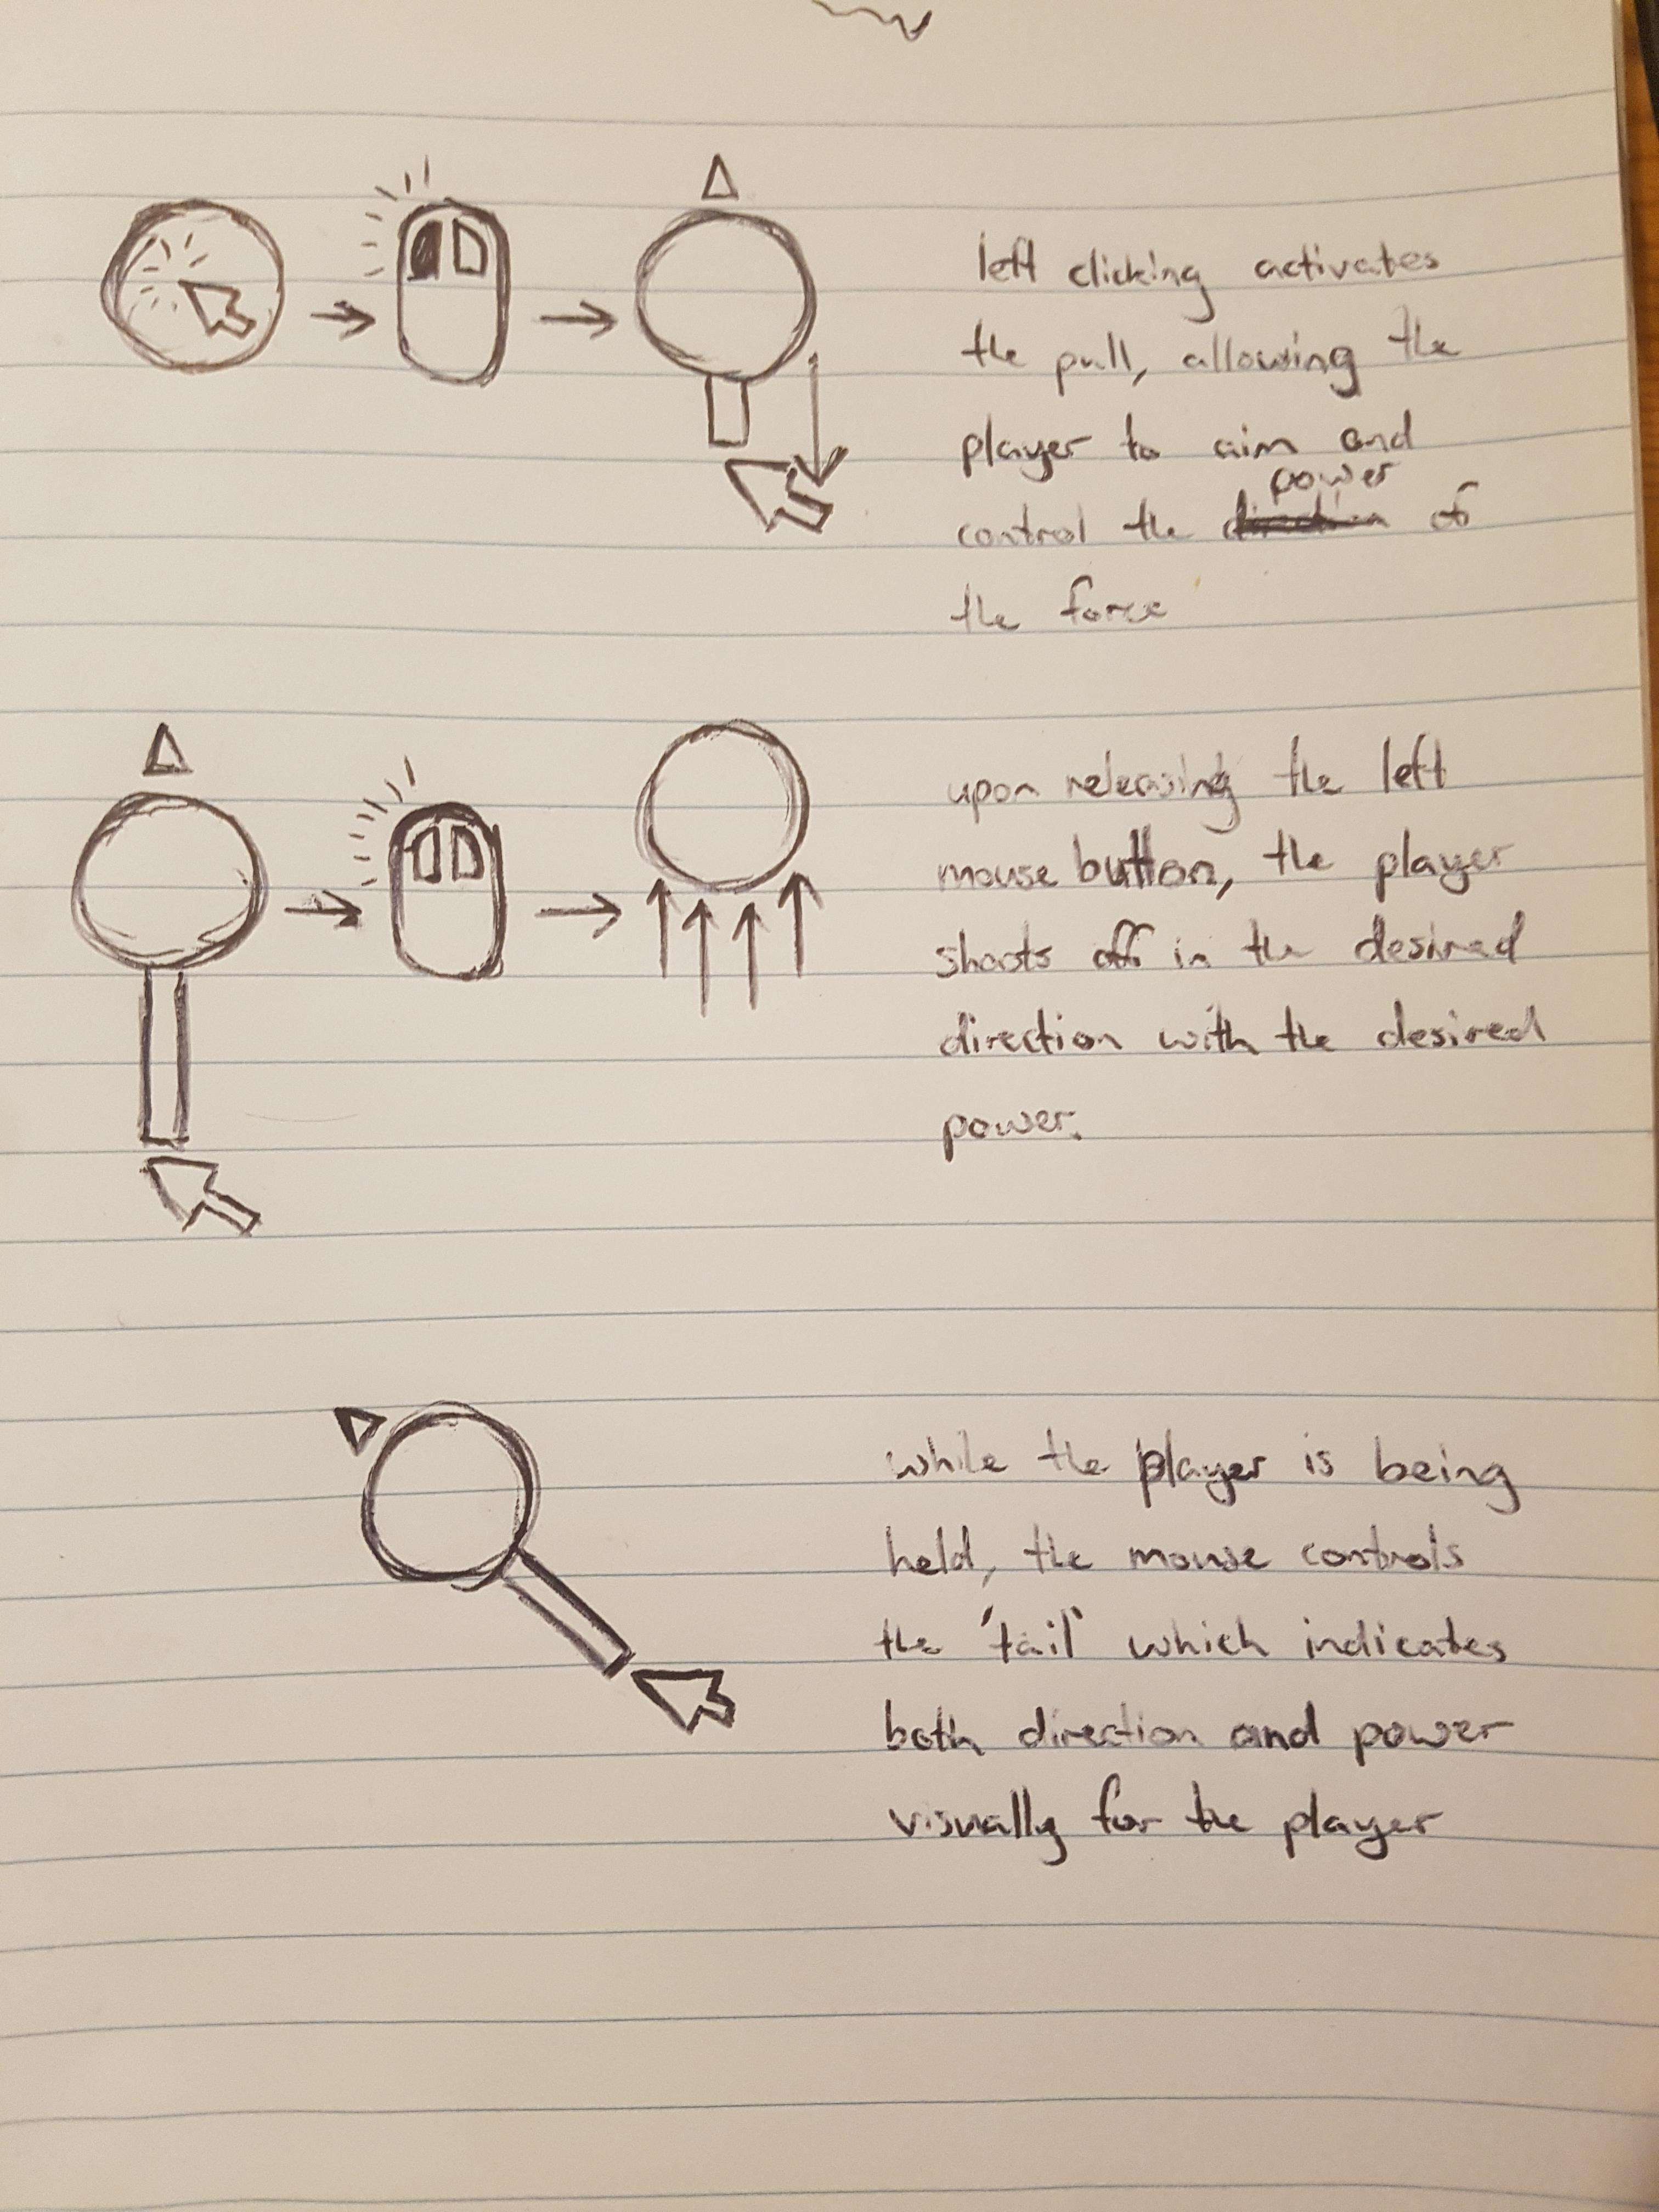 left clicking activates
the pull, allowing the
player to aim and
power
control the direction of
the force
upon releasing the left
mouse button, the player
shoots off in the desired
direction with the desired
power.
while the player is being
held, the mouse controls
the 'tail' which indicates
both direction and power
visually for the player